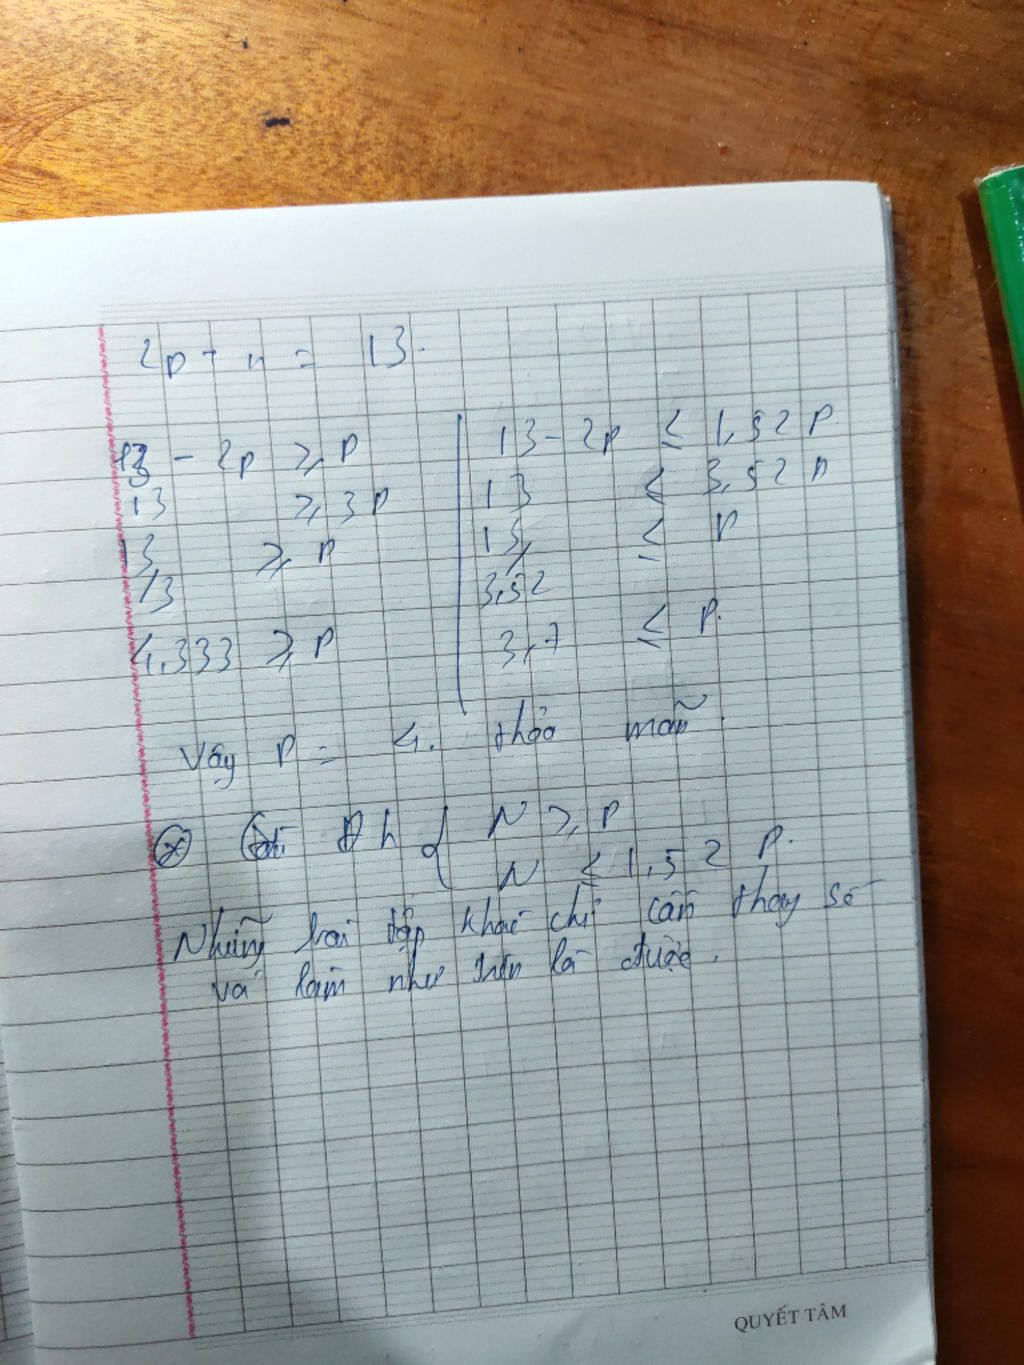 2p + n = 13.
13 - 2p ≥ P
13 ≥ 3P
13 ≥ P
/3
4,333 ≥ P
13 - 2p ≤ 1,52 P
13 ≤ 3,52 P
13, ≤ P
3,52
3,7 ≤ P.
Vậy P = 4. thỏa mãn.
Đh { N ≥ P
N ≤ 1,52 P.
Những bài tập khác chỉ cần thay số
và làm như trên là được.
QUYẾT TÂM